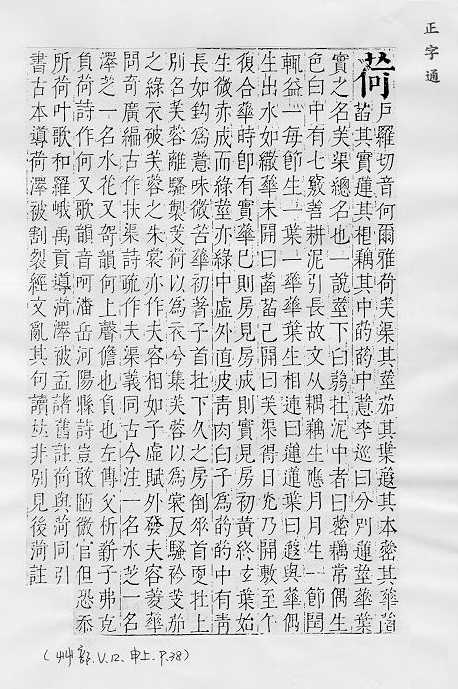 正字通
荷
戶羅切音何爾雅荷芙渠其莖茄其葉蕸其本蔤其華菡
萏其實蓮其根藕其中的的中薏李巡曰分別蓮莖華葉
實之名芙渠總名也一說莖下白蒻在泥中者曰蔤藕常偶生
色白中有七竅善耕泥引長故文从耦藕生應月月生一節閏
輒益一每節生一葉一華華葉生相連曰蓮葉曰蕸與華偶
生出水如繖華未開曰菡萏已開曰芙渠得日光乃開敷至午
復合華時卽有實華已則房見房成則實見房初黃終玄葉始
生微赤成而綠莖亦綠中虛外直皮靑肉白子為菂菂中有靑
長如鉤為薏味微苦華初著子首在下久之房倒垂首更在上
別名芙蓉離騷製芰荷以為衣兮集芙蓉以為裳反騷衿芰茄
之綠衣被芙蓉之朱裳亦作夫容相如子虛賦外發夫容菱華
問奇廣編古作扶渠詩疏作夫渠義同古今注一名水芝一名
澤芝一名水花又哿韻何上聲儋也負也左傳父析薪子弗克
負荷詩作何又歌韻音呵潘岳河陽縣詩豈敢陋微官但恐忝
所荷叶歌和羅峨禹貢導菏澤被孟諸舊註荷與菏同引
書古本導荷澤被割裂經文亂其句讀𠀤非別見後菏註
(艸部.V.12.申上.P.38)